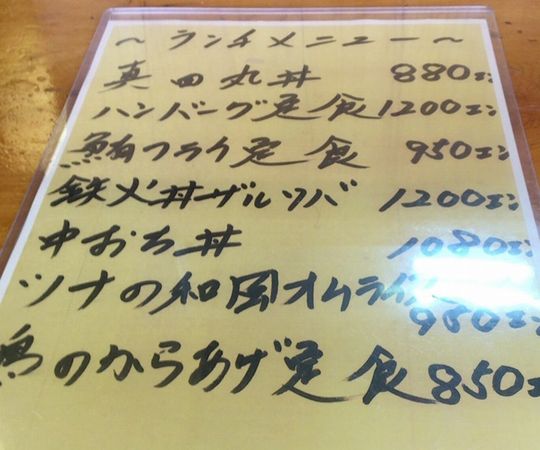 ～ランチメニュー～
真田丸丼 880エン
ハンバーグ定食 1200エン
鮪フライ定食 950エン
鉄火丼ザルソバ 1200エン
中おち丼 1080エン
ツナの和風オムライス
980エン
鶏のからあげ定食 850エン